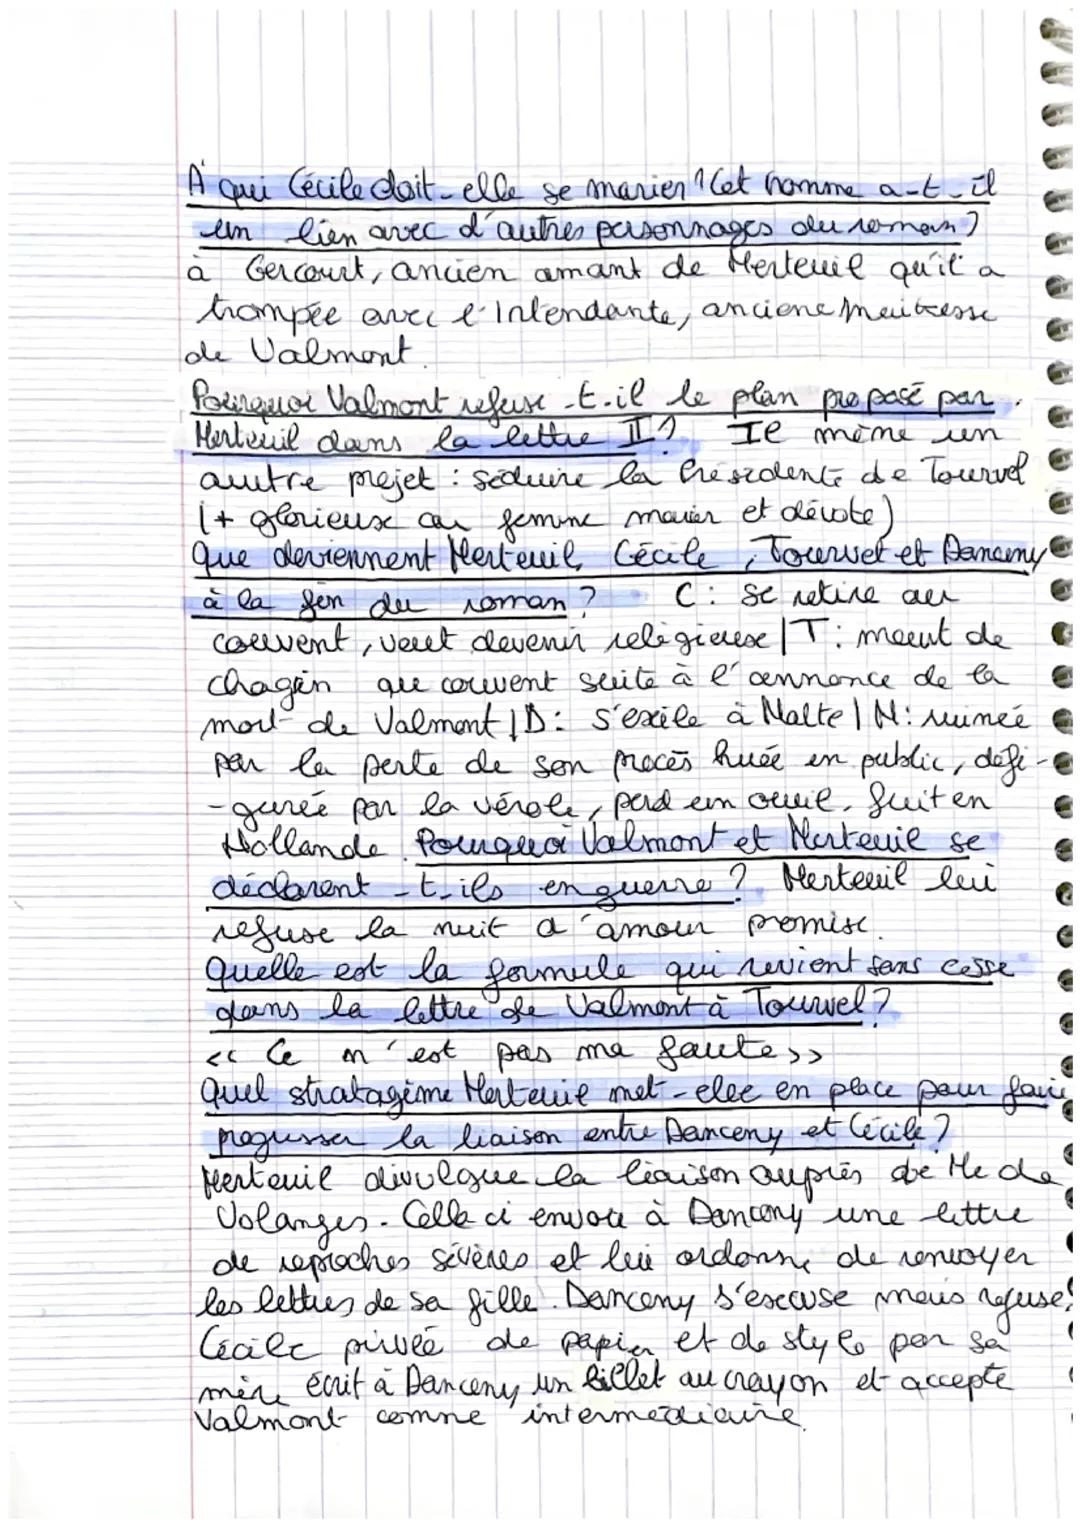 À qui Cécile doit-elle se marier ? Cet homme a-t-il
un lien avec d'autres personnages du roman ?
à Gercourt, ancien amant de Merteuil qu'il a
trompée avec l'Intendante, anciene maitresse
de Valmont.
Pourquoi Valmont refuse-t-il le plan proposé par
Merteuil dans la lettre II ? Il mène un
autre projet : séduire la Présidente de Tourvel
(+ glorieuse car femme marier et dévote)
Que deviennent Merteuil, Cécile, Tourvel et Danceny
à la fin du roman ? C : se retire au
couvent, veut devenir religieuse | T : meurt de
chagrin au couvent suite à l'annonce de la
mort de Valmont | D : s'exile à Malte | M : ruinée
par la perte de son procès huée en public, défi-
-gurée par la vérole, perd un oeuil, fuit en
Hollande. Pourquoi Valmont et Merteuil se
déclarent-t-ils en guerre ? Merteuil lui
refuse la nuit d'amour promise.
Quelle est la formule qui revient sans cesse
dans la lettre de Valmont à Tourvel ?
<< Ce n'est pas ma faute >>
Quel stratagème Merteuil met-elle en place pour faire
progresser la liaison entre Danceny et Cécile ?
Merteuil divulgue la liaison auprès de Me de
Volanges. Celle ci envoie à Danceny une lettre
de reproches sévères et lui ordonne de renvoyer
les lettres de sa fille. Danceny s'escuse mais refuse.
Cécile privée de papier et de stylo par sa
mère écrit à Danceny un billet au crayon et accepte
Valmont comme intermédiaire.